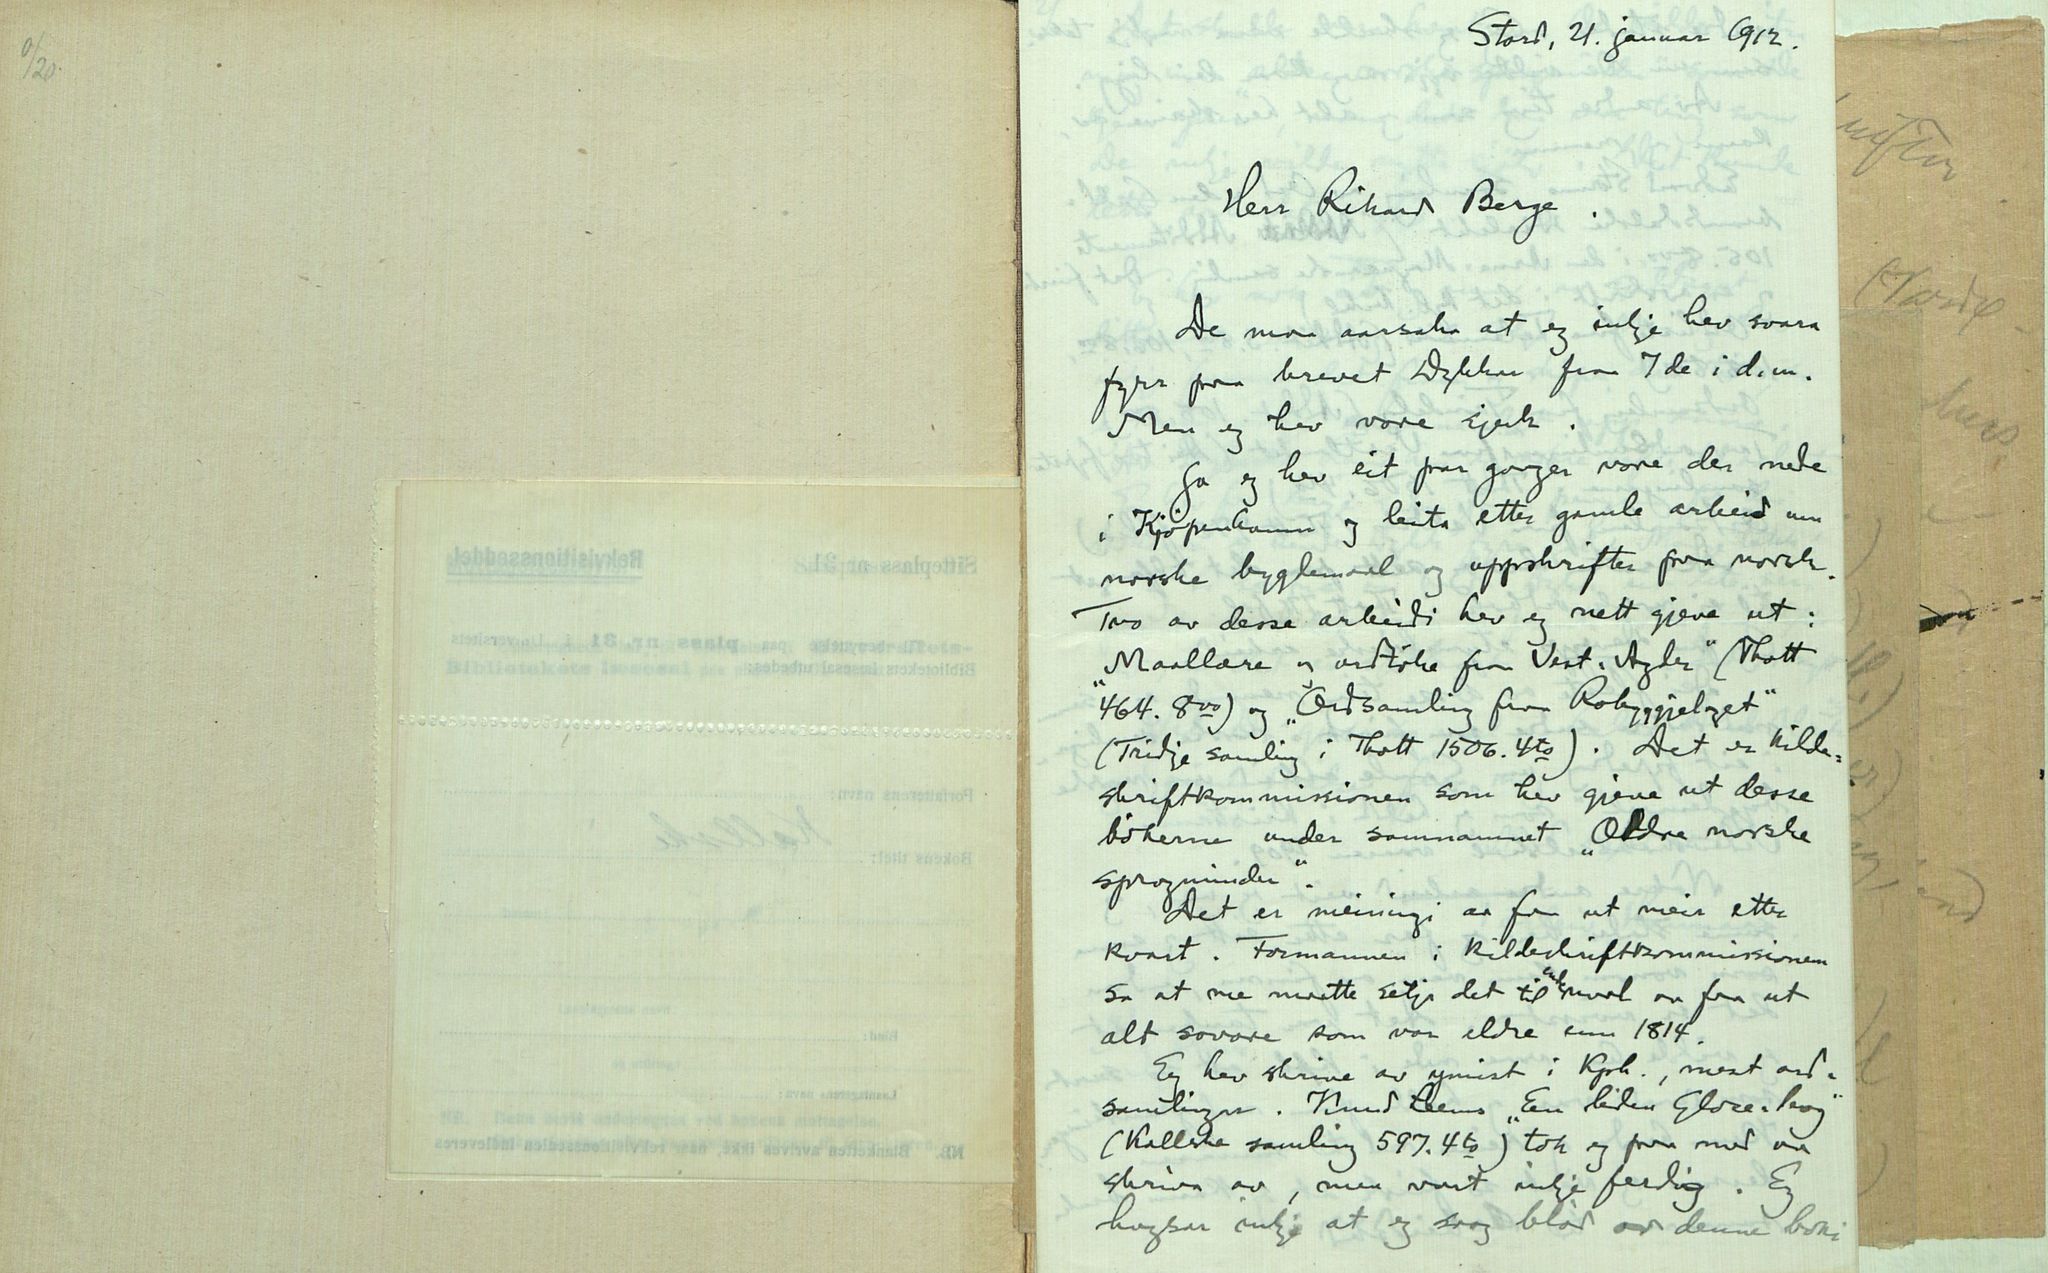 0/20.
Stord, 21. januar 1912.
Herr Rikard Berge.
De maa aarsaka at eg inkje hev svara
fyrr paa brevet Dykkar fraa 7de i d.m.
Men eg hev vore sjuk.
Ja eg hev eit par gonger vore der nede
i Kjøpenhamn og leita etter gamle arbeid um
norske bygdemaal og uppskrifter paa norsk.
Two av desse arbeidi hev eg nett gjeve ut:
„Maallære og ordtøke fraa Vest-Agder“ (Thott
464. 8vo) og „Ordsamling fraa Robyggjelaget“
(Tridje samling i Thott 1506. 4to). Det er Kilde-
skriftkommissionen som hev gjeve ut desse
bökerne under samnamnet „Ældre norske
sprogminder“.
Det er meiningi aa faa ut meir etter
kvart. Formannen i Kildeskriftkommissionen
sa at me maatte setja det til maal aa faa ut
alt sovore som var eldre enn 1814.
Eg hev skrive av ymist i Kph., mest ord-
samlinger. Knud Leems „En liden Glose-bog“
(Kallske samling 597. 4to) tok eg paa med aa
skriva av, men vart inkje ferdig. Eg
hugsar inkje at eg saag blad av denne boki
Rekvisitionsseddel
Sitteplass nr 31.
Til benyttelse paa plass nr 31 i Universitets-
Bibliotekets læsesal utbedes:
Forfatterens navn:
Bokens titel:
Kallske
Bind:
Læsningens navn:
NB. Blanketten avrives ikke, naar rekvisitionsseddelen indleveres